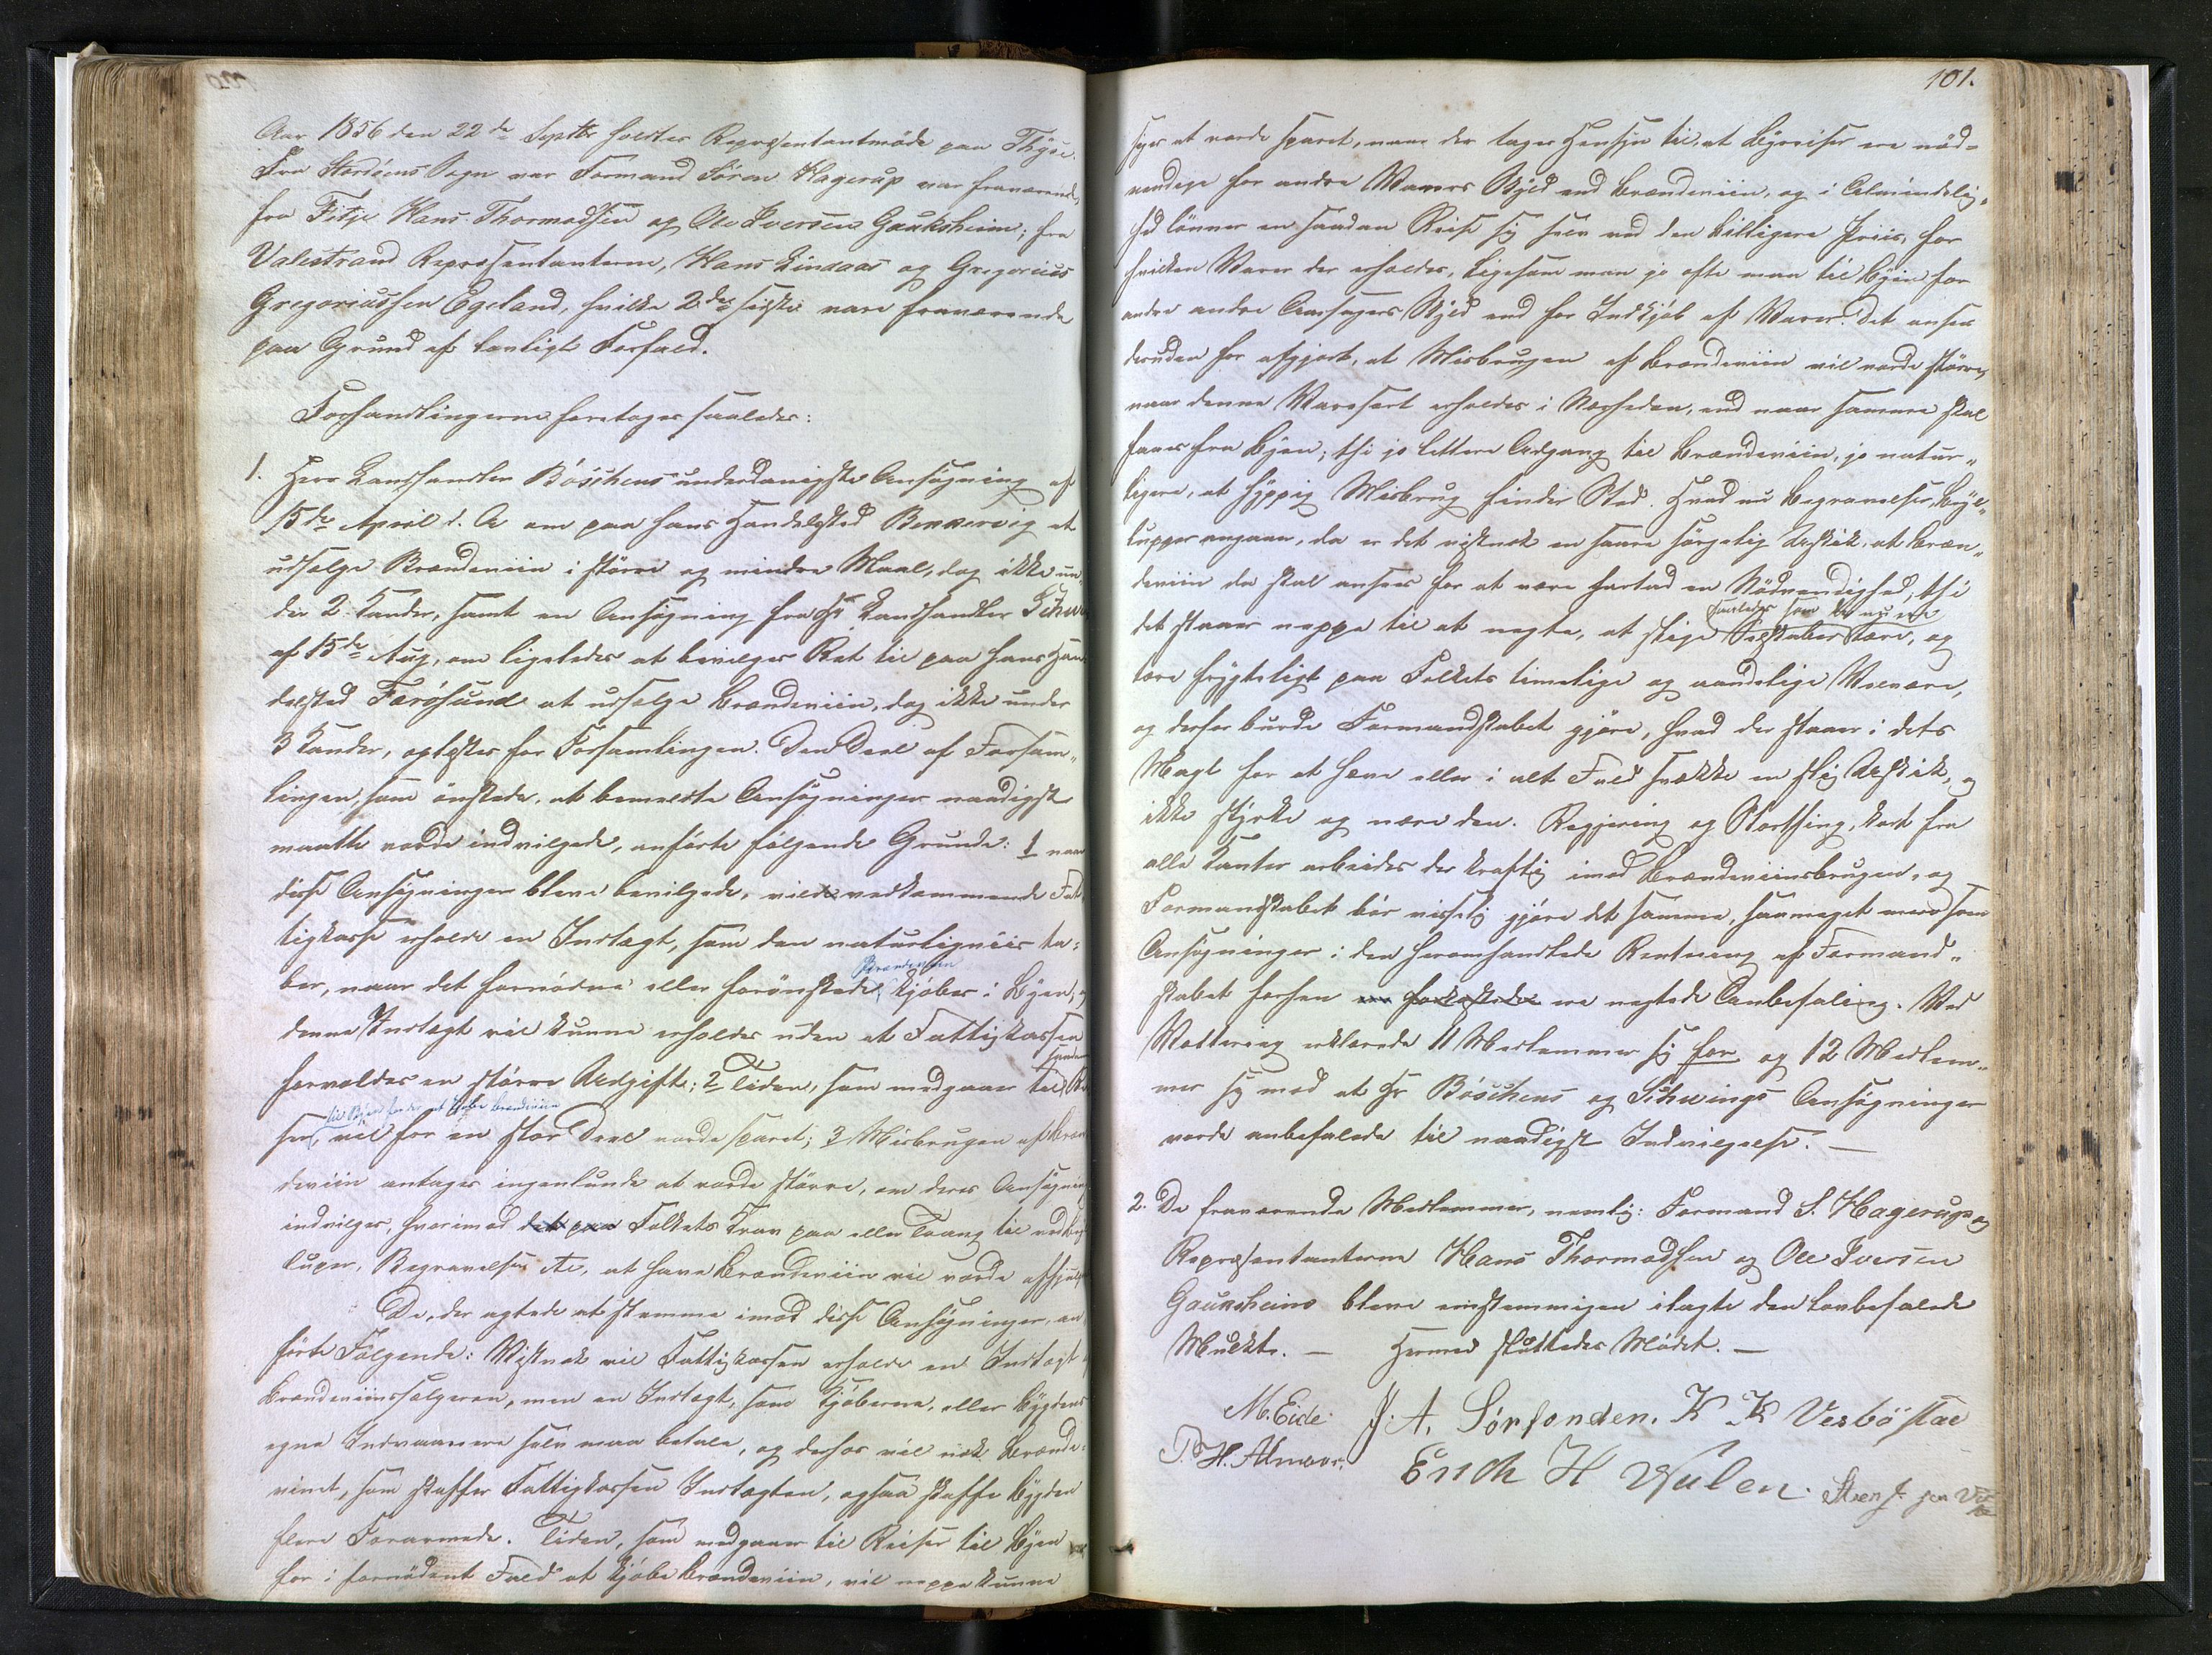 Aar 1856 den 22de Septbr holdtes Repræsentantmöde paa Thyse.
Fra Stordöens Sogn var Formand Sören Hagerup var fraværende,
fra Fitje Hans Thormodsen og Ole Iversen Gauksheim; fra
Valestrand Repræsentanterne, Hans Lindaas og Gregorius
Gregoriussen Egeland, hvilke 2de sidste vare fraværende
paa Grund af lovligt Forfald.
Forhandlingerne foretoges saaledes:
1. Herr Landhandler Böschens underdanigste Ansögning af
15de April d. A om paa hans Handelssted Bekkervig at
udsælge Brændeviin i större og mindre Maal, dog ikke un-
der 2 Kander, samt en Ansögning fra Hr Landhandler Schw
af 15de Aug, om ligeledes at bevilges Ret til paa hans Han
delssted Færösund at udsælge Brændeviin, dog ikke under
3 Kander, oplæstes for Forsamlingen. Den Deel af Forsam„
lingen, som önskede, at bemeldte Ansögninger naadigst
maatte vorde indvilgede, anförte fölgende Grunde: 1 naar
disse Ansögninger bleve bevilgede, vilde vedkommende Fat
tigkasse erholde en Indtægt, som den naturligviis ta-
ber, naar det fornödne eller forönskede Brændeviin kjöbes i Byen, og
denne Indtægt vil kunne erholdes uden at Fattigkassen
forvoldes en större Udgift; 2 Tiden, som medgaaer til Rei
ser til Byen for der at kjöbe Brændeviin, vil for en stor Deel vorde sparet; 3 Misbrugen af Bræn
deviin antages ingenlunde at vorde större, om deres Ansögning
indvilges, hvorimod det paa Folkets Krav paa eller Trang til ved Bryl
luper, Begravelser etc, at have Brændeviin vil vorde afhjulpet
De, der agtede at stemme imod disse Ansögninger, an
förte Fölgende: Vistnok vil Fattigkassen erholde en Indtægt af
Brændeviinssælgeren, men en Indtægt, som Kjöberne, eller Bygdens
egne Indvaanere selv maa betale, og derhos vil nok Brænde-
vinet, som skaffer Fattigkassen Indtægten, ogsaa skaffe Bygden
flere Forarmede. Tiden, som medgaaer til Reiser til Byen
for i fornödent Fald at kjöbe Brændeviin, vil neppe kunne
101.
siges at vorde sparet, naar der tages Hensyn til, at Byreiser ere nöd-
vendige for andre Varers Skyld end Brændeviin, og i Almindelig„
hed lönner en saadan Reise sig selv ved den billigere Priis, for
hvilken Varer der erholdes, ligesom man jo ofte maa til Byen for
andre andre Aarsagers Skyld end for Indkjöb af Varer. Det ansees
desuden for afgjort, at Misbrugen af Brændeviin vil vorde större,
naar denne Varesort erholdes i Nærheden, end naar samme skal
faaes fra Byen; thi jo lettere Adgang til Brændeviin, jo natur„
ligere, at hyppig Misbrug finder Sted. Hvad nu Begravelser, Bryl„
lupper angaaer, da er det vistnok en saare sörgelig Uskik, at Bræn„
deviin da skal ansees for at være hartad en Nödvendighed, thi
det staaer neppe til at negte, at slige Selskaber saaledes som de nu ere tære, og
tære frygteligt paa Folkets timelige og aandelige Velvære,
og derfor burde Formandskabet gjöre, hvad der staaer i dets
Magt for at hæve eller i alt Fald svække en slig Uskik, og
ikke styrke og nære den. Regjering og Storthing, kort fra
alle Kanter arbeides der kraftig imod Brændeviinsbrugen, og
Formandskabet bör visselig gjöre det samme, saameget mere som
Ansögninger i den heromhandlede Retning af Formand„
skabet forhen ere forkastede ere negtede Anbefaling. Ved
Vottering erklærede 11 Medlemmer sig for og 12 Medlem„
mer sig mod at Hr Böschens og Schwings Ansögninger
vorde anbefalede til naadigst Indvilgelse. —
2. De fraværende Medlemmer, nemlig: Formand S. Hagerup og
Repræsentanterne Hans Thormodsen og Ole Iversen
Gauksheim bleve eenstemmigen ilagte den lovbefalede
Mulkt. — Hermed sluttedes Mödet. —
M. Eide J. A. Sörfonden. K K Vesböstae
T. H. Almaas. Erich H Wulen.